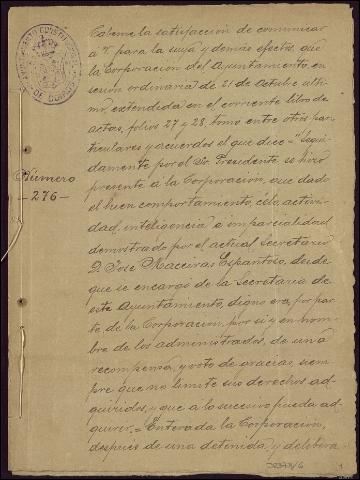 Cabeme la satisfacción de comunicar
a V. para la suya y demás efectos, que
la Corporación del Ayuntamiento, en
sesión ordinaria de 21 de Octubre últi-
mo, extendida en el corriente libro de
actas, folios 27 y 28, tomo entre otros par-
ticulares y acuerdos el que dice = "Segui-
damente por el Sr. Presidente se hizo
Número
presente a la Corporación, que dado
-276-
el buen comportamiento, celo, activi-
dad, inteligencia e imparcialidad
demostrado por el actual Secretario
D. José Maceiras Espantoso, desde
que se encargó de la Secretaría de
este Ayuntamiento, digno era, por par-
te de la Corporación, por si y en nom-
bre de los administrados, de una
recompensa, y voto de gracias, siem-
pre que no limite sus derechos ad-
quiridos, y que a lo sucesivo pueda ad-
quirir. = Enterada la Corporación,
después de una detenida, y delibera-